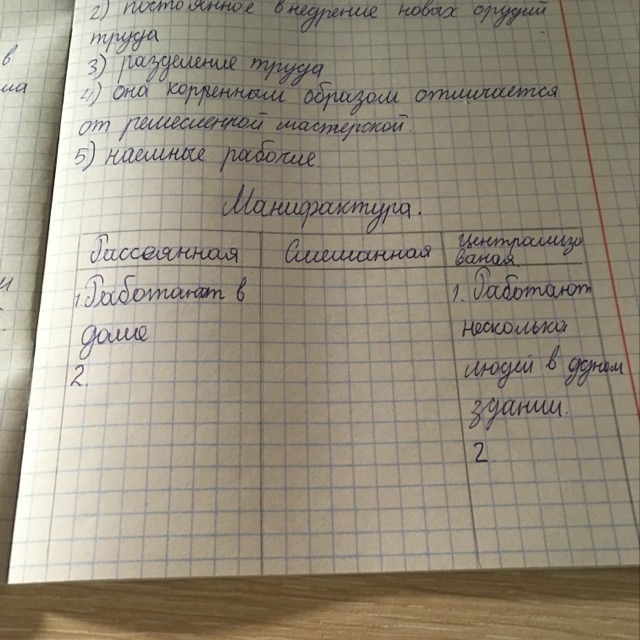 2) постоянное внедрение новых орудий
труда
3) разделение труда
4) она корренным образом отличается
от ремесленной мастерской.
5) наемные рабочие.
Манифактура.
Рассеянная
Смешанная
Централизо
ваная
1. Работают в
доме
2.
1. Работают
несколько
людей в одном
здании.
2
в